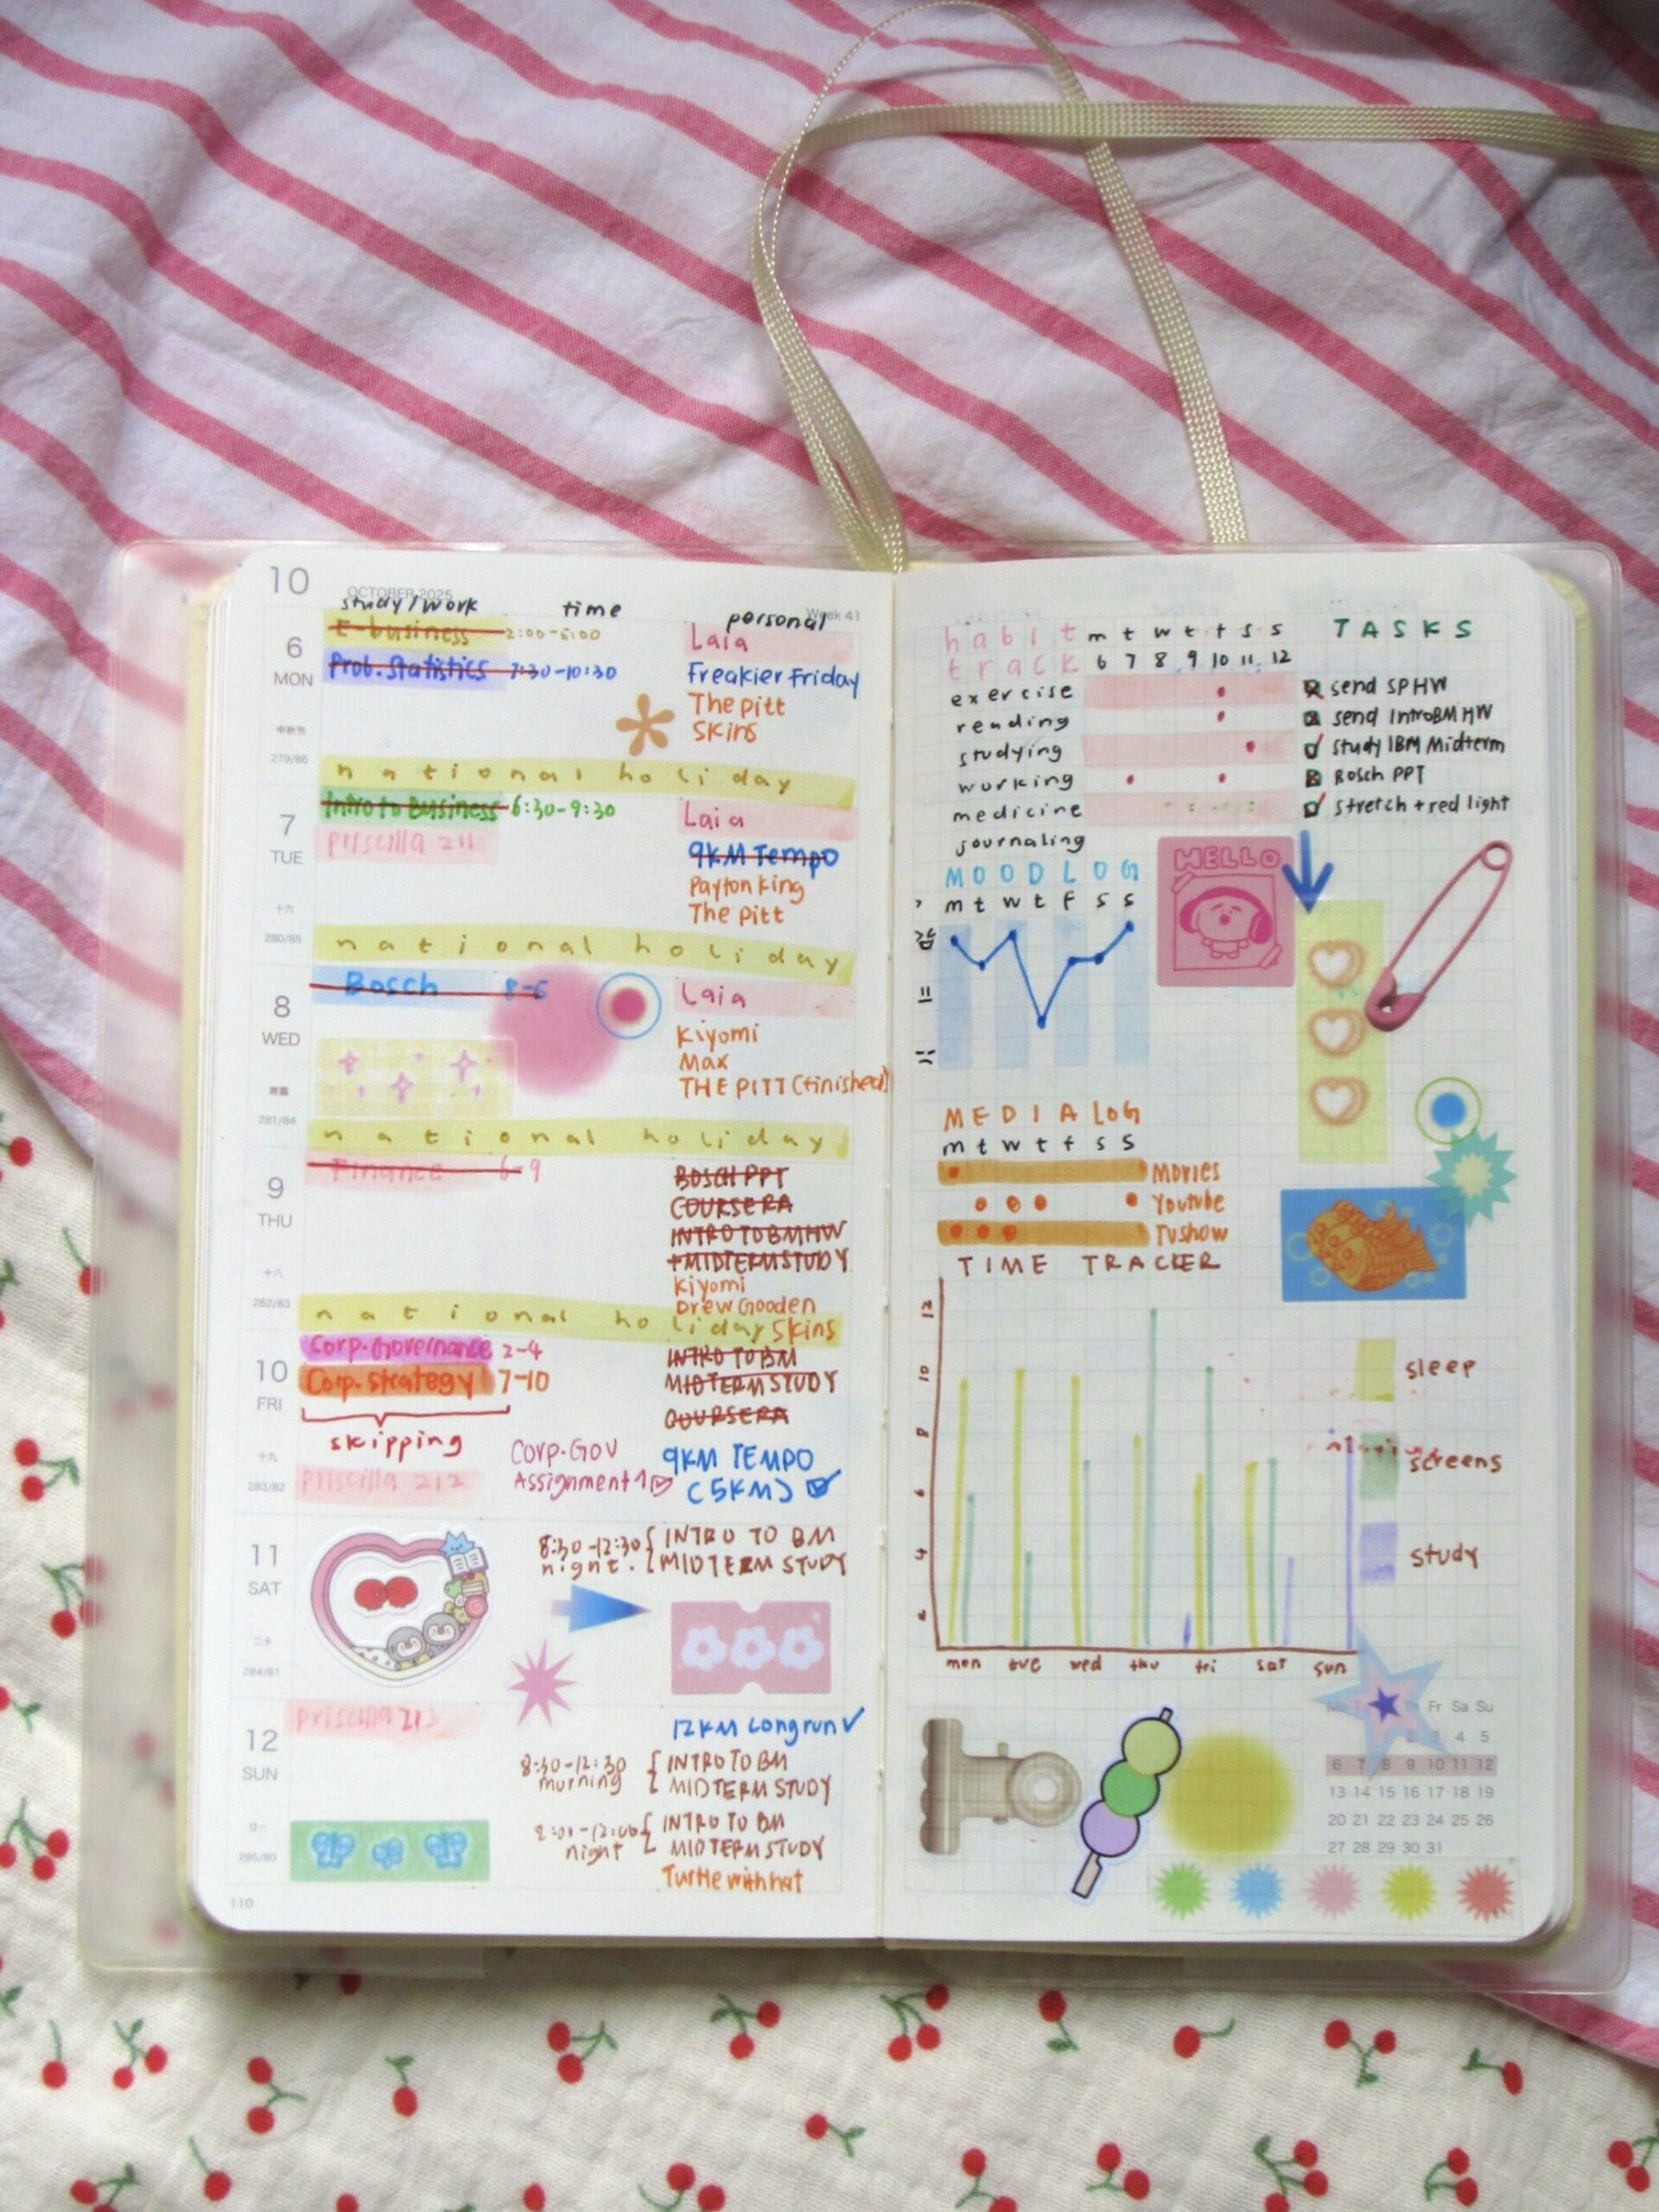 10
OCTOBER 2025
Week 41
study/work time personal
6
MON
中秋节
279/86
E-business 2:00-5:00
Prob. Statistics 7:30-10:30
Laia
Freakier Friday
The pitt
Skins
national holiday
7
TUE
十六
280/85
Intro to Business 6:30-9:30
Priscilla 211
Laia
9KM Tempo
Payton King
The pitt
national holiday
8
WED
281/84
Bosch 8-6
Laia
Kiyomi
Max
THE PITT (finished)
national holiday
9
THU
十八
282/83
Finance 6-9
BOSCH PPT
COURSERA
INTRO TO BM HW
+ MIDTERM STUDY
Kiyomi
Drew Gooden
Skins
national holiday
10
FRI
十九
283/82
Corp. Governance 2-4
Corp. strategy 7-10
skipping
Priscilla 212
Corp. Gov
Assignment 1
INTRO TO BM
MIDTERM STUDY
COURSERA
9KM TEMPO
(5KM)
11
SAT
二十
284/81
8:30-12:30
night.
INTRO TO BM
MIDTERM STUDY
12
SUN
285/80
Priscilla 213
12KM Longrun
8:30-12:30
morning
INTRO TO BM
MIDTERM STUDY
night
INTRO TO BM
MIDTERM STUDY
Turtle with hat
110
habit
track
m t w t f s s
6 7 8 9 10 11 12
exercise
reading
studying
working
medicine
journaling
TASKS
send SPHW
send IntroBM HW
study IBM Midterm
Bosch PPT
stretch + red light
MOOD LOG
m t w t f s s
HELLO
MEDIA LOG
m t w t f s s
Movies
Youtube
Tvshow
TIME TRACKER
12
10
8
6
4
2
mon tue wed thu fri sat sun
sleep
screens
study
Fr Sa Su
3 4 5
6 7 8 9 10 11 12
13 14 15 16 17 18 19
20 21 22 23 24 25 26
27 28 29 30 31